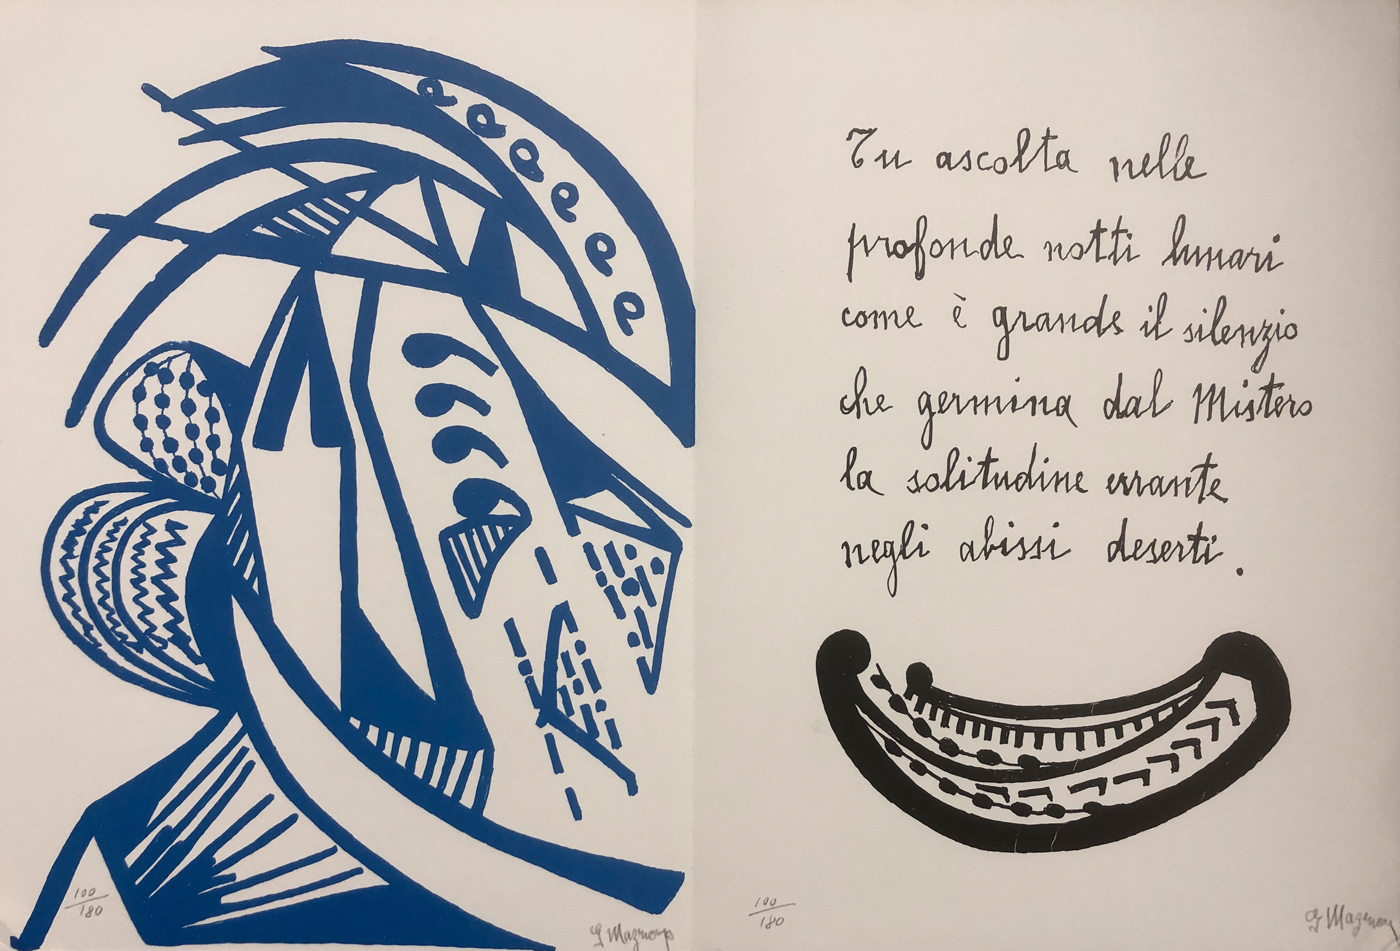 Tu ascolta nelle
profonde notti lunari
come è grande il silenzio
che germina dal Mistero
la solitudine errante
negli abissi deserti.
100/180
100/180